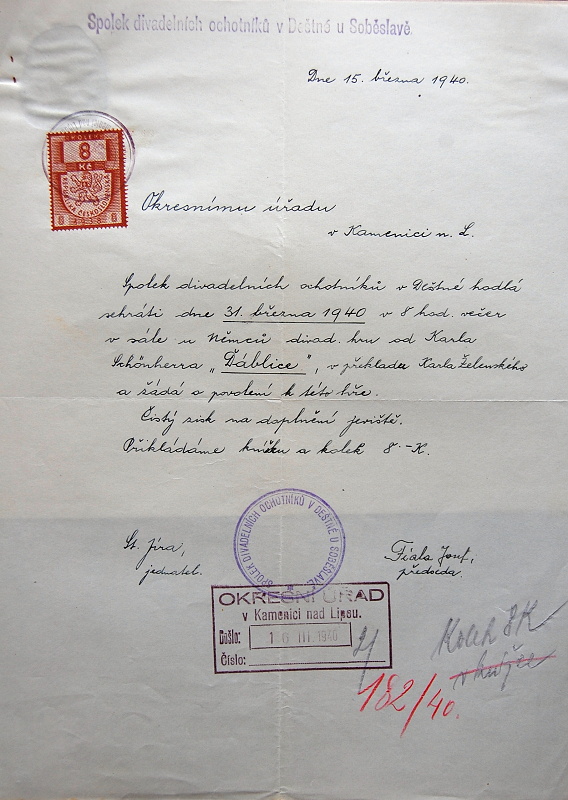 Spolek divadelních ochotníků v Deštné u Soběslavě.
Dne 15. března 1940.
8
Kč
8 8
Okresnímu úřadu
v Kamenici n. L.
Spolek divadelních ochotníků v Deštné hodlá
sehráti dne 31. března 1940 v 8 hod. večer
v sále u Němců divad. hru od Karla
Schönherra „Ďáblice", v překladu Karla Želenského
a žádá o povolení k této hře.
Čistý zisk na doplnění jeviště.
Přikládáme knížku a kolek 8.-K.
SPOLEK DIVADELNÍCH OCHOTNÍKŮ V DEŠTNÉ U SOBĚSLAVĚ
St. Jíra,
jednatel.
Fiala Josef,
předseda.
OKRESNÍ ÚŘAD
v Kamenici nad Lipou.
Došlo: 16 III 1940
Číslo:
Kolek 8K
182/40.